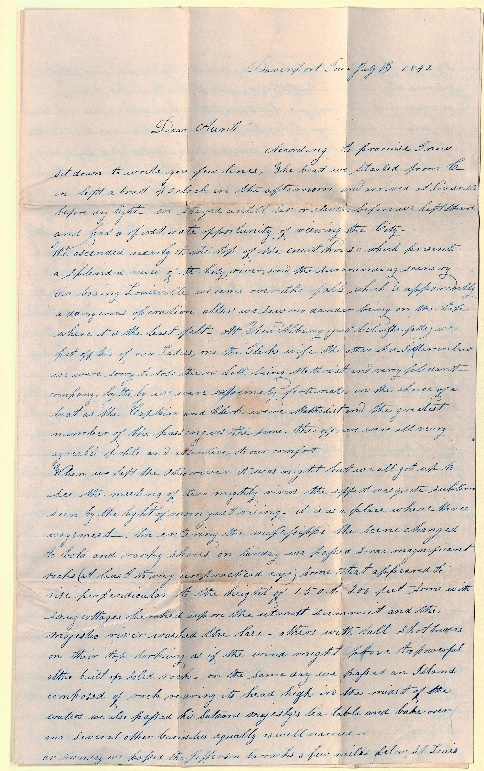 Davenport July 1842
Dear Aunt
According to promise I now
sit down to write you few lines. The boat we started from
in left about o'clock in the afternoon and arrived at Louisville
before day light. we stayed until ten or eleven before we left there
and had a opportunity of viewing the City.
We ascended nearly to the top of the court house which presents
a splendid view of the City, river, and the surrounding scenery
On leaving Louisville we came over the falls, which is apparently
a dangerous operation altho we saw no danger being on the boat
where it is the least felt. At New Albany just below the falls, we
put off two of our Ladies, one the Clerks wife the other his
we were sorry to lose them both being Methodist and very pleasant
company. by the by we were extremely fortunate in the choice of a
boat as the Captain and Clerk were Methodist and the greatest
number of the passengers the same. the were all very
agreeable polite and attentive to our comfort
When we left the Ohio river it was night but we all got up to
see the meeting of two mighty rivers the effect was quite sublime
seen by the light of moon just rising. it is a place where three
ways meet. On entering the Mississippi the scene changed
to bold and rocky shores on Sunday we passed some magnificent
rocks (at least to my unpracticed eye) some that appeared to
rise perpendicular to the height of 150 to 200 feet some with
cottages perched upon the utmost summit and the
majestic river washed the base. others with tall shot towers
on their top looking as if the wind might prove to powerful
altho built on solid rock. on the same day we passed an Island
composed of rock rearing its head high in the midst of the
waters we also passed his satanic majestys tea table and bake oven
and several other curiosities equally as well named.
on Sunday we passed the Jefferson barracks a few miles below St Louis